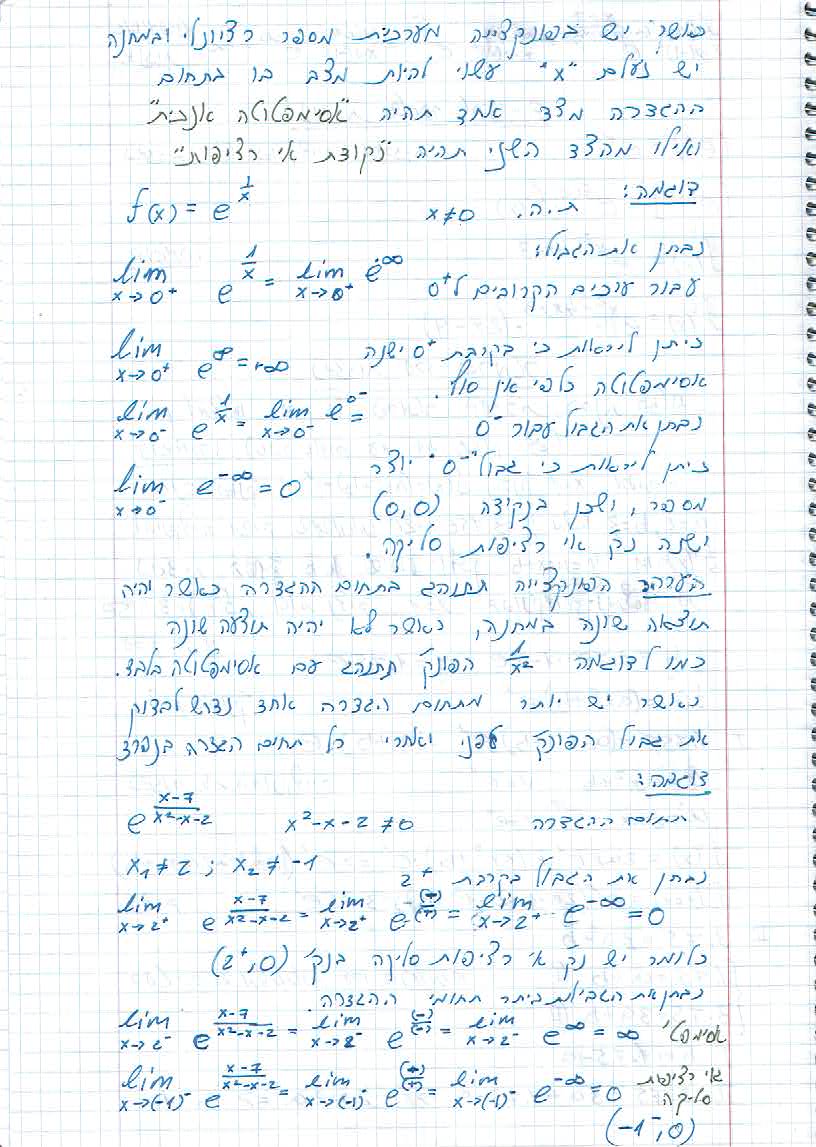 כאשר יש בפונקצייה מערכית מספר רציונלי ובמחנה
יש נעלם "x" עשוי להיות מצב בו בתחום
ההגדרה מצד אחד תהיה "אסימפטוטה אנכית"
ואילו מהצד השני תהיה "נקודת אי רציפות"
דוגמה:
f(x) = e^{1/x} ת.ה. x≠0
נבחן את הגבול:
lim x→0⁺ e^{1/x} = lim x→0⁺ e^{∞} עבור ערכים הקרובים ל 0⁺
lim x→0⁺ e^{∞} = +∞ ניתן לראות כי בקרבת 0⁺ ישנה
אסימפטוטה כלפי אין סוף.
lim x→0⁻ e^{1/x} = lim x→0⁻ e^{0⁻} = נבחן את הגבול עבור 0⁻
ניתן לראות כי גבול "0⁻" יוצר
lim x→0⁻ e^{-∞} = 0 מספר, ושכן בנקודה (0,0)
ישנה נק' אי רציפות סליקה.
הערה: הפונקצייה תתנהג בתחום ההגדרה כאשר יהיה
תוצאה שונה במחנה, כאשר לא יהיה תוצעה שונה
כמו לדוגמה 1/x² הפונק' תתנהג עם אסימפטוטה בלבד.
כאשר יש יותר מתחום הגדרה אחד נדרש לבדוק
את גבול הפונק' לפני ואחרי כל תחום הגדרה בנפרד
דוגמה:
e^{(x-7)/(x²-x-2)} x²-x-2 ≠ 0 תחום ההגדרה
x₁≠2 ; x₂≠-1
נבחן את הגבול בקרבת 2⁺
lim x→2⁺ e^{(x-7)/(x²-x-2)} = lim x→2⁺ e^{(-)/(+)} = lim x→2⁺ e^{-∞} = 0
כלומר יש נק' אי רציפות סליקה בנק' (2⁺,0)
נבחן את הגבולות ביתר תחומי ההגדרה.
lim x→2⁻ e^{(x-7)/(x²-x-2)} = lim x→2⁻ e^{(-)/(-)} = lim x→2⁻ e^{∞} = ∞ אסימפט'
lim x→(-1)⁻ e^{(x-7)/(x²-x-2)} = lim x→(-1)⁻ e^{(-)/(+)} = lim x→(-1)⁻ e^{-∞} = 0 אי רציפות
סליקה
(-1⁻,0)